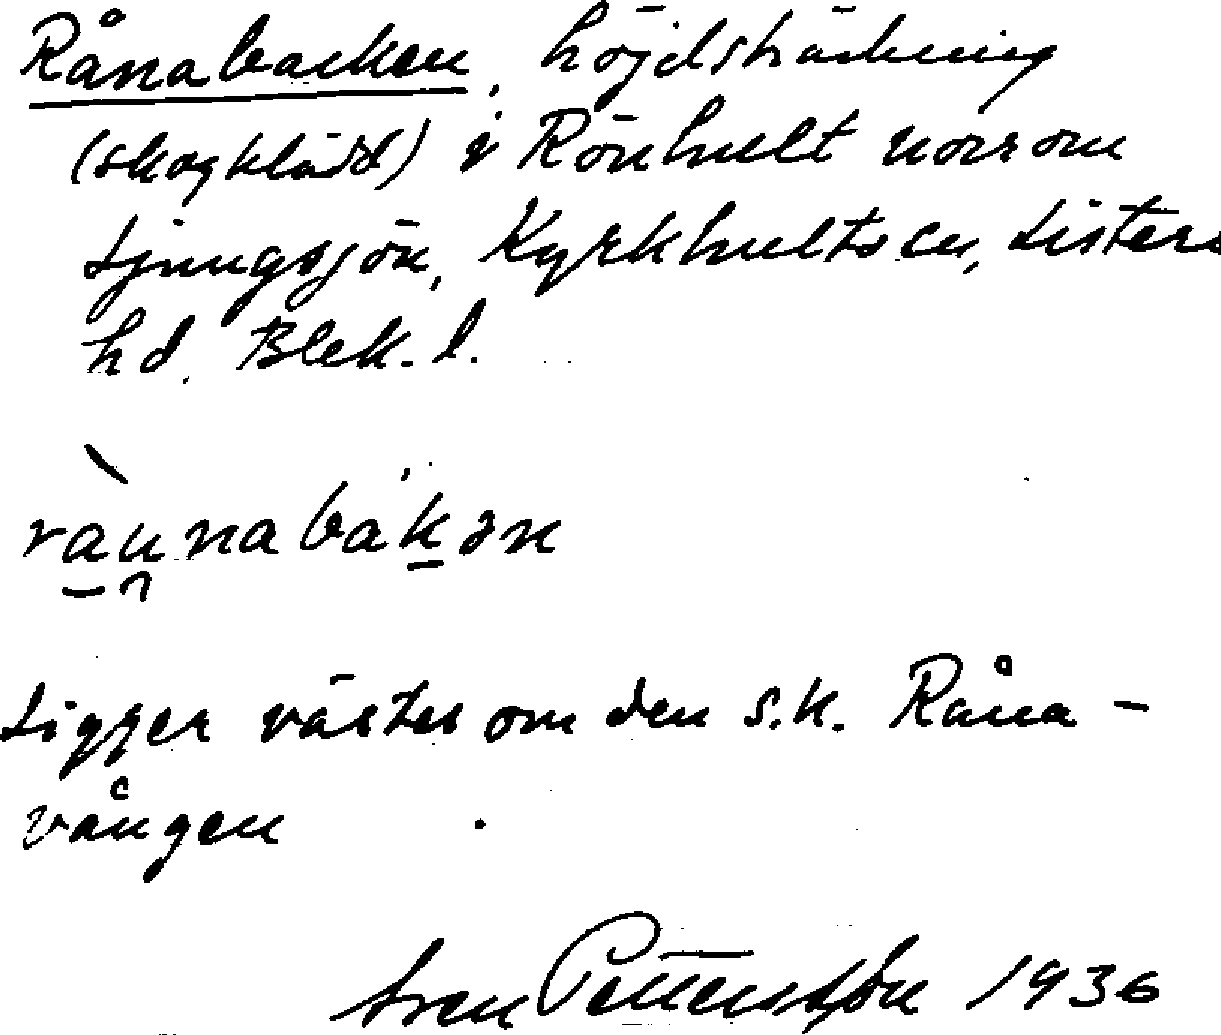 Rånabacken, höjdsträckning
(skogklädd) i Rönhult norr om
Ljungsjön, Kyrkhults sn, Listers
hd. Blek. l.
ràunnabákən
Ligger väster om den s.k. Råna-
vången
Sven Pettersson 1936